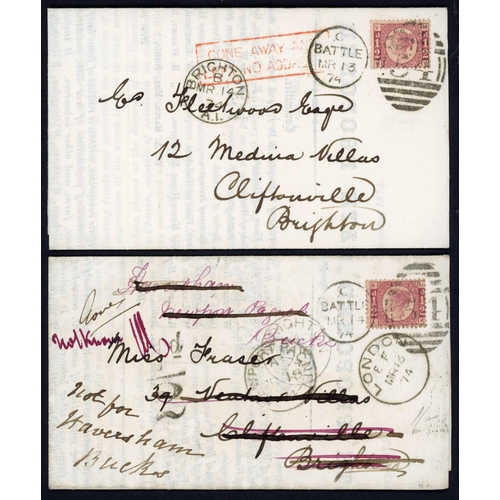 GONE AWAY AND
NO ADD
BRIGHTON
B
MR 14
A.1.
C
BATTLE
MR 13
74
Es. Fleetwood Esqre
12 Medina Villas
Cliftonville
Brighton
Haversham
Newport Pagnel
Bucks
Gone
Not Known
C
BATTLE
MR 14
74
LONDON
E F
MR 16
74
Miss Fraser
39 Ventnor Villas
Cliftonville
Brighton
Not for
Haversham
Bucks